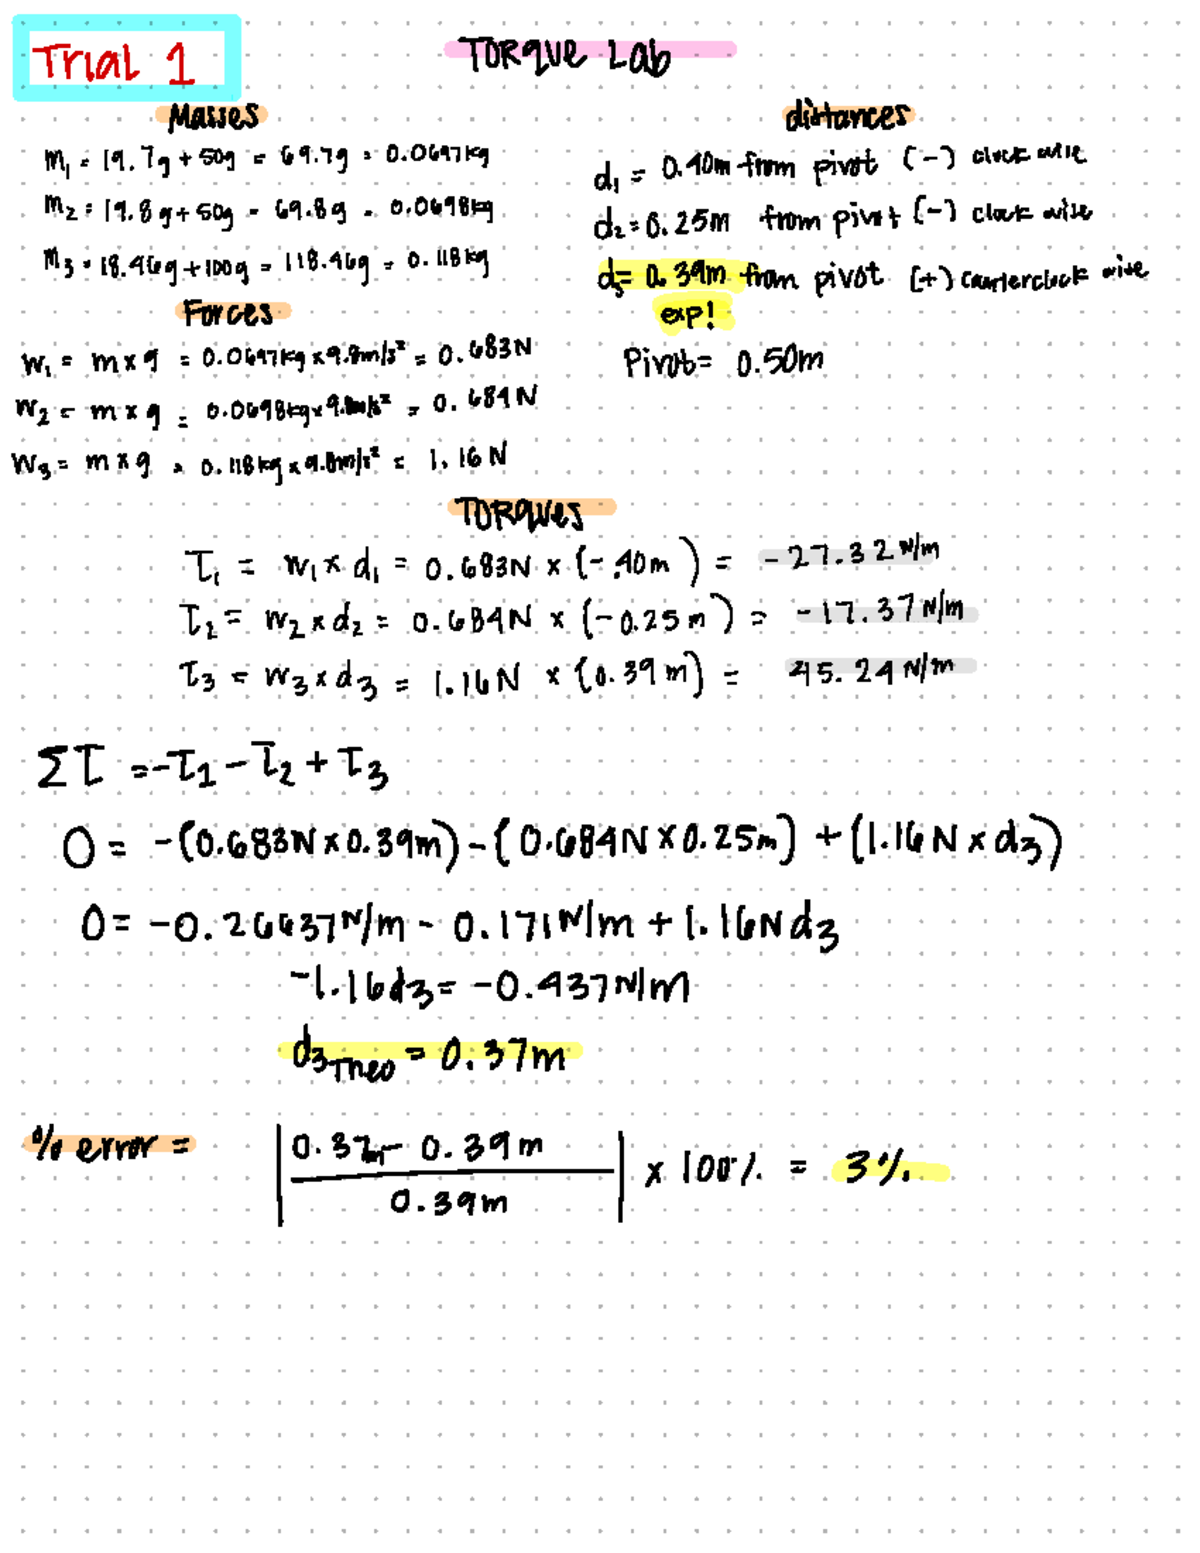 Trial 1
Torque Lab
Masses
m₁ = 19.7g + 50g = 69.7g = 0.0697kg
m₂ = 19.8g + 50g = 69.8g = 0.0698kg
m₃ = 18.46g + 100g = 118.46g = 0.118kg
distances
d₁ = 0.40m from pivot (-) clockwise
d₂ = 0.25m from pivot (-) clockwise
d₃ = 0.39m from pivot (+) counterclockwise
exp!
Pivot = 0.50m
Forces
W₁ = m x g = 0.0697kg x 9.8m/s² = 0.683N
W₂ = m x g = 0.0698kg x 9.8m/s² = 0.684N
W₃ = m x g = 0.118kg x 9.8m/s² = 1.16N
Torques
τ₁ = W₁ x d₁ = 0.683N x (-.40m) = -27.32 N/m
τ₂ = W₂ x d₂ = 0.684N x (-0.25m) = -17.37 N/m
τ₃ = W₃ x d₃ = 1.16N x (0.39m) = 45.24 N/m
Στ = -τ₁ - τ₂ + τ₃
0 = -(0.683N x 0.39m) - (0.684N x 0.25m) + (1.16N x d₃)
0 = -0.26637N/m - 0.171N/m + 1.16Nd₃
-1.16d₃ = -0.437N/m
d₃Theo = 0.37m
% error = |0.37m - 0.39m / 0.39m| x 100% = 3%